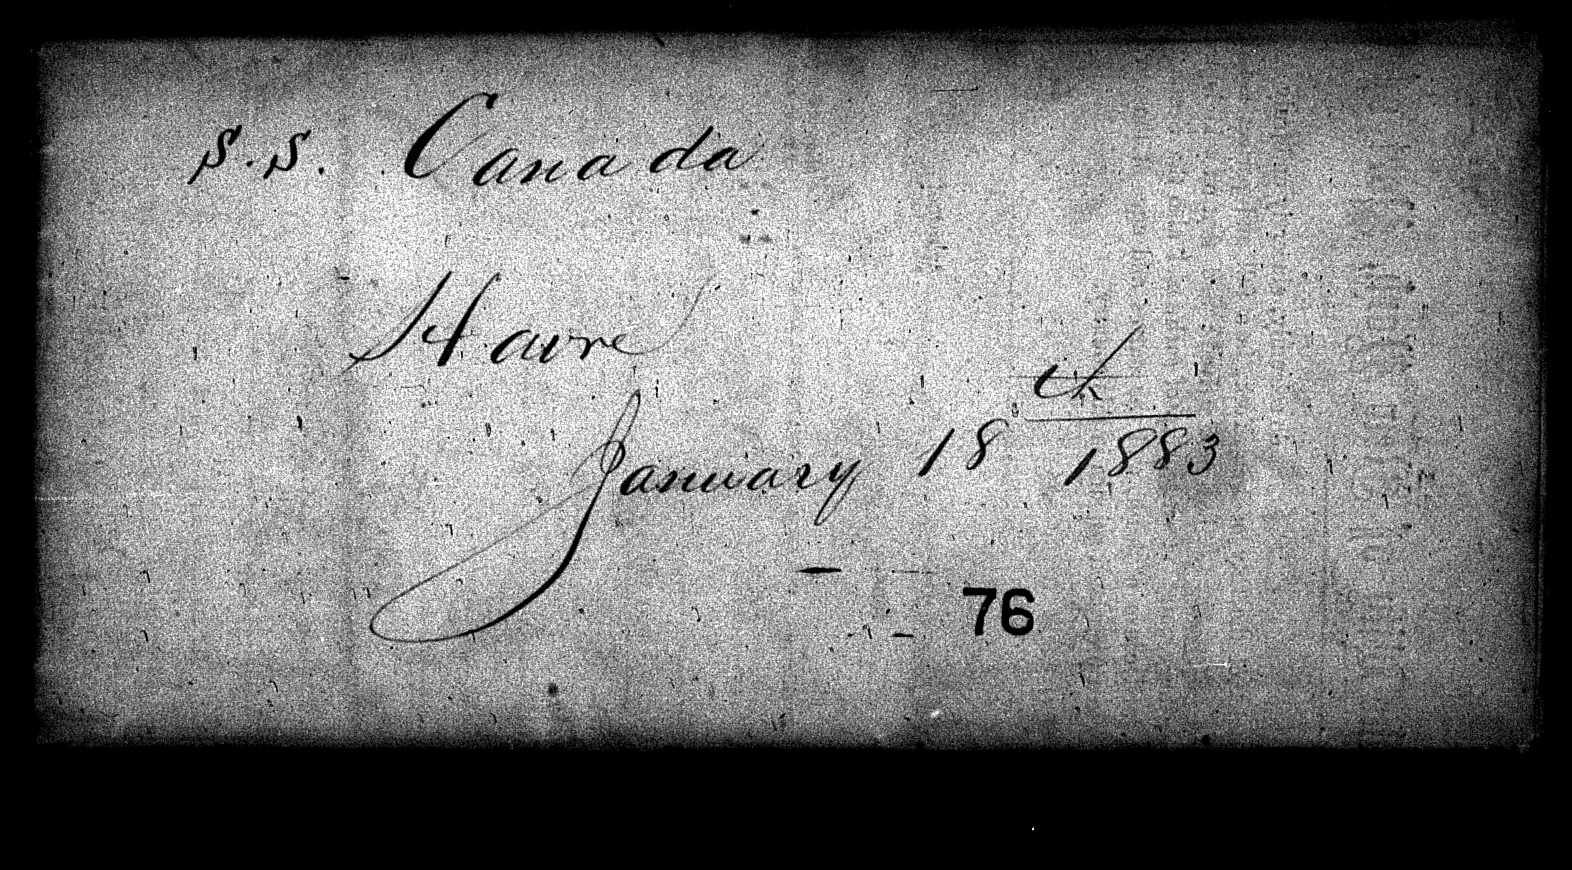 S.S. Canada
Havre
January 18th 1883
76